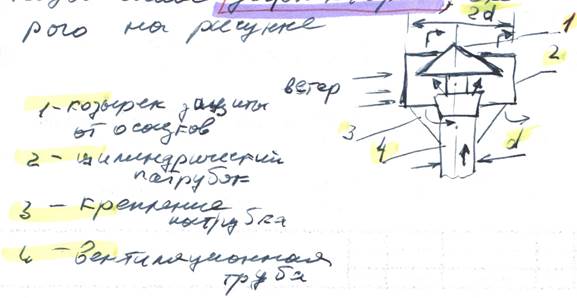 рого на рисунке
1 - козырек защиты
от осадков
2 - цилиндрический
патрубок
3 - крепление
патрубка
4 - Вентиляционная
труба
ветер
2d
1
2
3
4
d